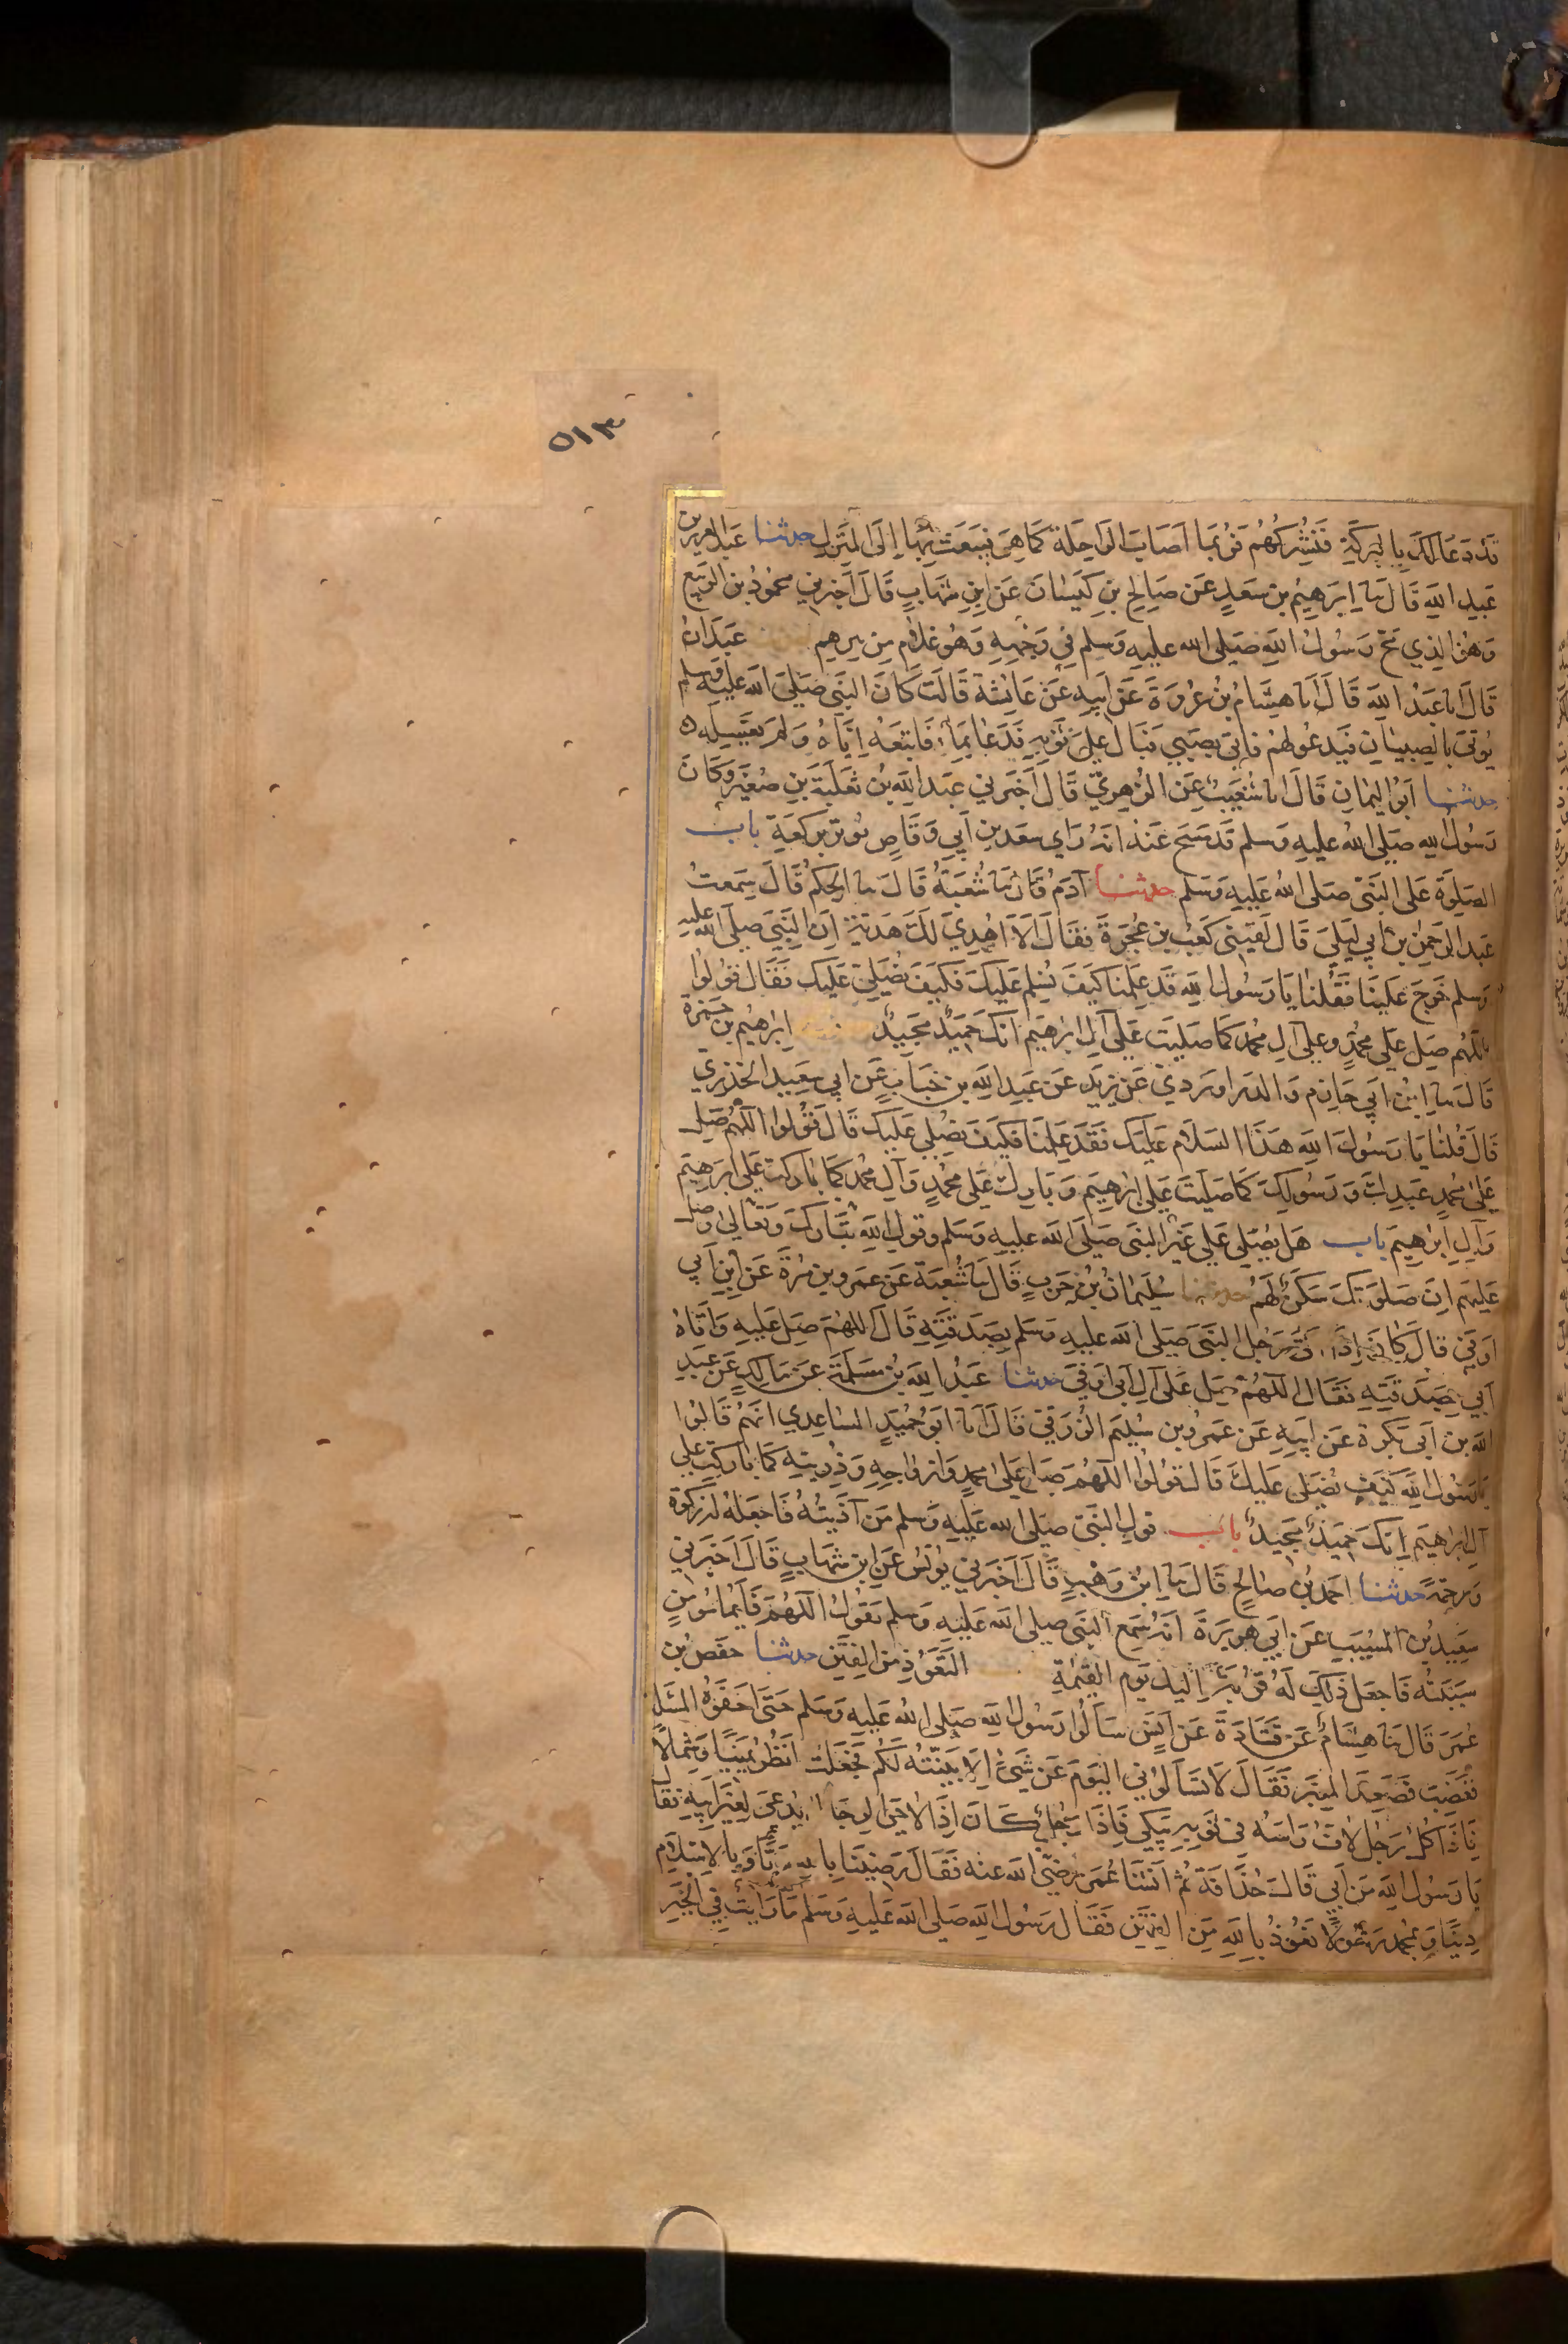 ٥١٣
قَد دَعَا لَكَ بِالبَركَةِ فَنُشْرِكُهُم فَرُبَمَا اَصَابَ الراحِلَة كَمَا هِيَ فيَبَعَث بِهَا اِلَى المَنزِل حدثنا عَبدالعزيز بن
عَبدِ اللهِ قَالَ ثنا اِبرَهِيم بن سَعدٍ عَن صَالِح بنِ كَيسَانَ عَن ابنِ شِهَابٍ قَالَ اَخبرني محمُودُ بن الرَبيع
وَهُوَ الذِي مَجَّ رَسُولُ اللهِ صَلى الله عليهِ وَسلم فِي وَجْهِهِ وَهُو غلام مِن بيرهم عَبدَانُ
قَالَ انا عَبدُ اللهِ قَالَ انا هِشَامُ بنُ عُروَةَ عَن اَبيهِ عَن عَايشَةَ قَالَت كَانَ النَبي صَلىَ الله عليهِ وسلم
يُوتىَ بِالصِبيَانِ فيَدعُو لهُم فاُتيَ بصَبيِ فَبَال عَلىَ ثَوبهِ فَدَعَا بمَا فَاتبَعَهُ اِيَاهُ وَلم يَغسِلهُ
حدثنا اَبُو اليمَانِ قَالَ انا شُعَيبٌ عَن الزهري قَالَ اَخبَرني عبدالله بن ثَعلبَةَ بن صُعَيرٍ وَكَانَ
رَسُولُ اللهِ صَلى اللهُ عليهِ وَسلم قَد مَسَحَ عَنهُ انهُ رَاي سعَد بن اَبي وَقَاصٍ يُوتر بركعَةِ باب
الصَلوَة عَلى النَبيّ صَلى اللهُ عَلَيهِ وَسَلم حدثنا آدَمُ قَالَ ثنا شُعبَةُ قَالَ ثنا الحَكمُ قَالَ سَمِعتُ
عَبد الرَحمنِ بن اَبي لَيلَى قَالَ لَقيَني كَعبُ بن عُجرَةَ فَقَالَ اَلاَ اُهدِيَ لَكَ هَدَيَّة اِن النَبيَ صلى الله عليهِ
وَسلم خرَجَ عَلينَا فَقُلنَا يَا رَسُول اللهِ قَد عَلِمنَا كَيفَ نُسلم عَليكَ فكَيفَ نُصَلِي عَليك فَقَال فقُولُوا
اللهُم صَلِ عَلى محمدٍ وعلى آلِ محمد كمَا صَليتَ عَلى آلِ ابرَهِيم انك حَميدٌ مجَيدٌ اِبرهيم بن حمزة
قَالَ ثنا اِبنُ اَبي حَازِم وَالدرَاوردي عَن يزيَد عَن عَبدِ الله بن خبَابٍ عَن ابي سَعيد الخدري
قَالَ قُلنَا يَا رَسُولَ اللهِ هَذَا السَلاَم عَليك فَقَد عَلِمنَا فكَيفَ نصُلي عَليك قَال فقُولوا اللهم صَل
عَلى محمدٍ عَبدِكَ وَرَسُولِكَ كمَا صَليتَ عَلى ابرهِيم وَبَارِك عَلى محمدٍ وَآلِ محمد كمَا بَارَكت عَلى ابرَهيمَ
وَآلِ ابرَهِيم باب هَل يُصَلي عَلى غَيرِ النبَي صَلىَ الله عليهِ وَسَلم وقول اللهِ تبَارَكَ وَتعَالى وصل
عَليهم اِن صَلوَتكَ سَكنٌ لَهُم حدثنا سُليمَانُ بنُ حَربٍ قَالَ ثنا شُعبَة عَن عَمرو بن مُرةَ عَن ابنِ اَبي
اَوفي قالَ كَانَ اِذَا اتَى رَجُل النَبيَ صَلى الله عليهِ وَسَلم بِصَدَقَتِهِ قَالَ اللهُم صَلِ عَليهِ وَاَتَاهُ
اَبي بِصَدَقتِهِ فَقَالَ اللهُم صل عَلى آلِ اَبي اَوفيَ حدثنا عَبدُ اللهِ بن مَسلَمَةَ عن مَالكٍ عَن عَبدِ
الله بن اَبي بَكرٍ عَن اَبيهِ عَن عَمرو بن سُليم الزُرَقي قَالَ انا اَبوحُميَدٍ الساعِدِي انهُم قَالوُا
يَا رَسُول اللهِ كيَف نُصَلى عَليكَ قَال قُولوُا اللهُم صَل عَلى محمدٍ وَازوَاجِهِ وَذُرِيتهِ كمَا بَاركت عَلى
آلِ ابرَاهِيمَ اِنكَ حَمِيدٌ مَجيدٌ باب قول النَبيّ صلى الله عَليهِ وَسلم مَن آذَيتُهُ فَاجعَلهُ له زكوة
وَرحمَةً حدثنا احمَد بن صَالح قَالَ ثنا اِبنُ وَهبٍ قَالَ اَخبَرني يُونسُ عَن ابن شهَابٍ قَالَ اَخبَرني
سَعِيد بن المُسَيِبِ عَن اَبي هُريرَةَ اَنهُ سَمِع النَبيَ صلى الله عَليهِ وَسلم يَقُولُ اللهُم فَاَيُمَا مُومنٍ
سَبَبتُه فَاجعَل ذَلِكَ لَهُ قُربَةً اِليكَ يَومَ القِيمَةِ التَعَوُذِ مِنَ الفِتَنِ حدثنا حَفصُ بن
عُمَرَ قَالَ ثنا هِشَامٌ عَن قَتَادَةَ عَن اَنَسٍ سَاَلُوا رَسُولَ اللهِ صَلى اللهُ عَليهِ وَسَلم حَتىَ اَحفَوهُ المسَئلة
فغَضِبَ فَصَعِدَ المِنبَر فَقَالَ لاَتسَاَلُوني اليَومَ عَن شَيءٍ اِلاَ بيَنتُهُ لَكُم فجَعَلتُ انظُرُ يميَنًا وَشمالاً
فَاذَا كل رَجُل لاَفٌ رَاسَهُ في ثَوبهِ يَبكي فَاِذَا رَجُل كَانَ اِذَا لاحَى الرِجَالَ يُدعىَ لِغَيرِ اَبيهِ فقَال
يَا رَسُول اللهِ مَن اَبي قَالَ حُذَافَةُ ثُم اَنشَأ عُمَر رضي الله عنه فَقَالَ رَضِينَا بِاللهِ رَبًّا وَبالاِسلاَم
دِينًا وَبمحمدٍ رسُولاً نَعُوذُ بِاللهِ مِن الفِتَن فَقَال رَسُول اللهِ صَلى الله عَليهِ وَسَلم مَا رَايتُ فِي الخيَرِ